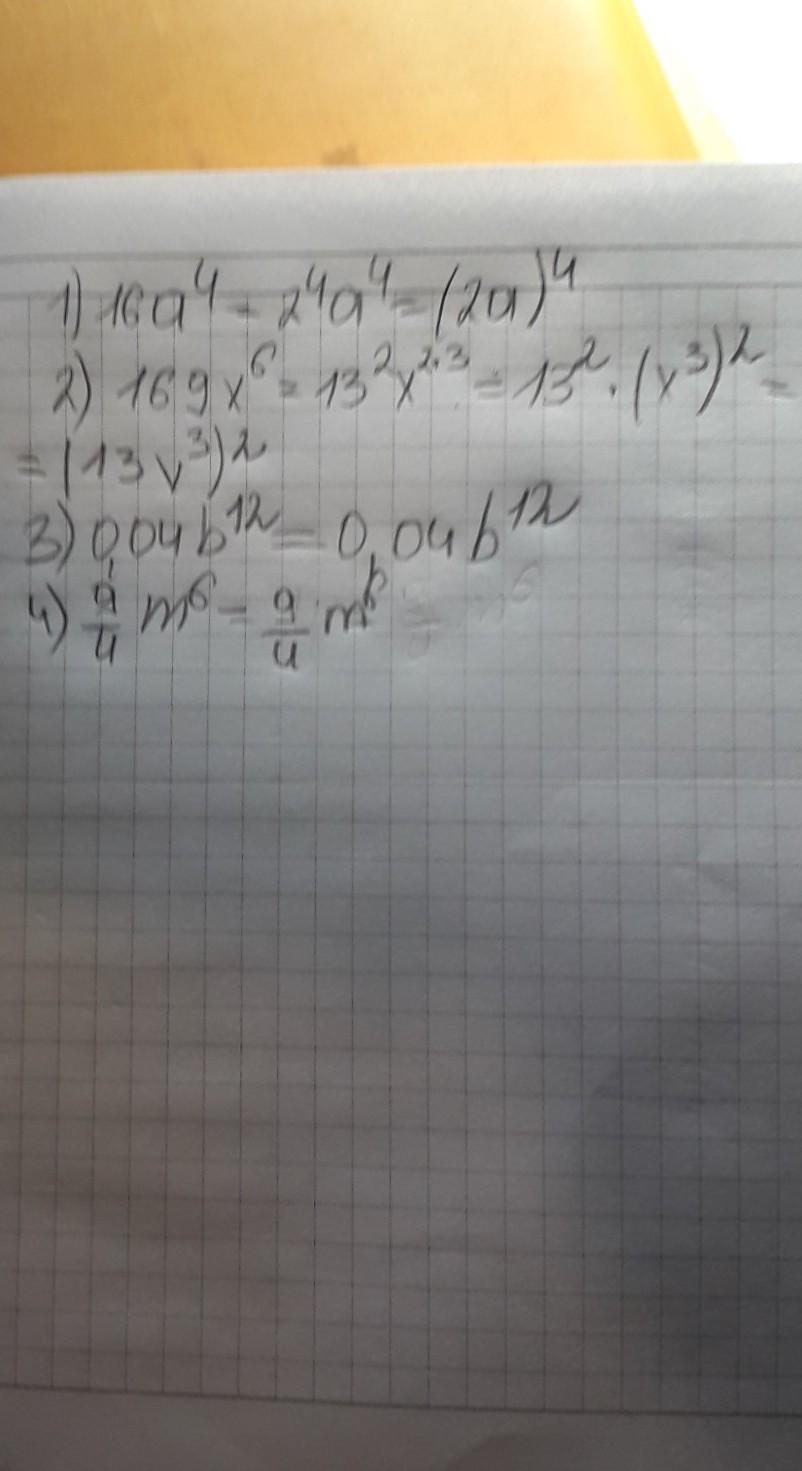 1) 16a⁴ = 2⁴a⁴ = (2a)⁴
2) 169x⁶ = 13²x²·³ = 13² · (x³)² =
= (13x³)²
3) 0,04b¹² = 0,04b¹²
4) 9/4 m⁶ = 9/4 m⁶